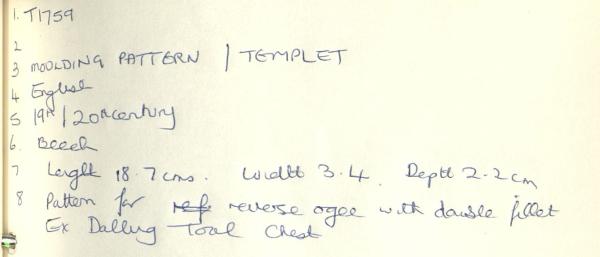 1. T1759
2
3 MOULDING PATTERN / TEMPLET
4 English
5 19th / 20th century
6. Beech
7 Length 18.7 cms. Width 3.4. Depth 2.2 cm
8 Pattern for ref reverse ogee with double fillet
Ex Dalling Tool Chest